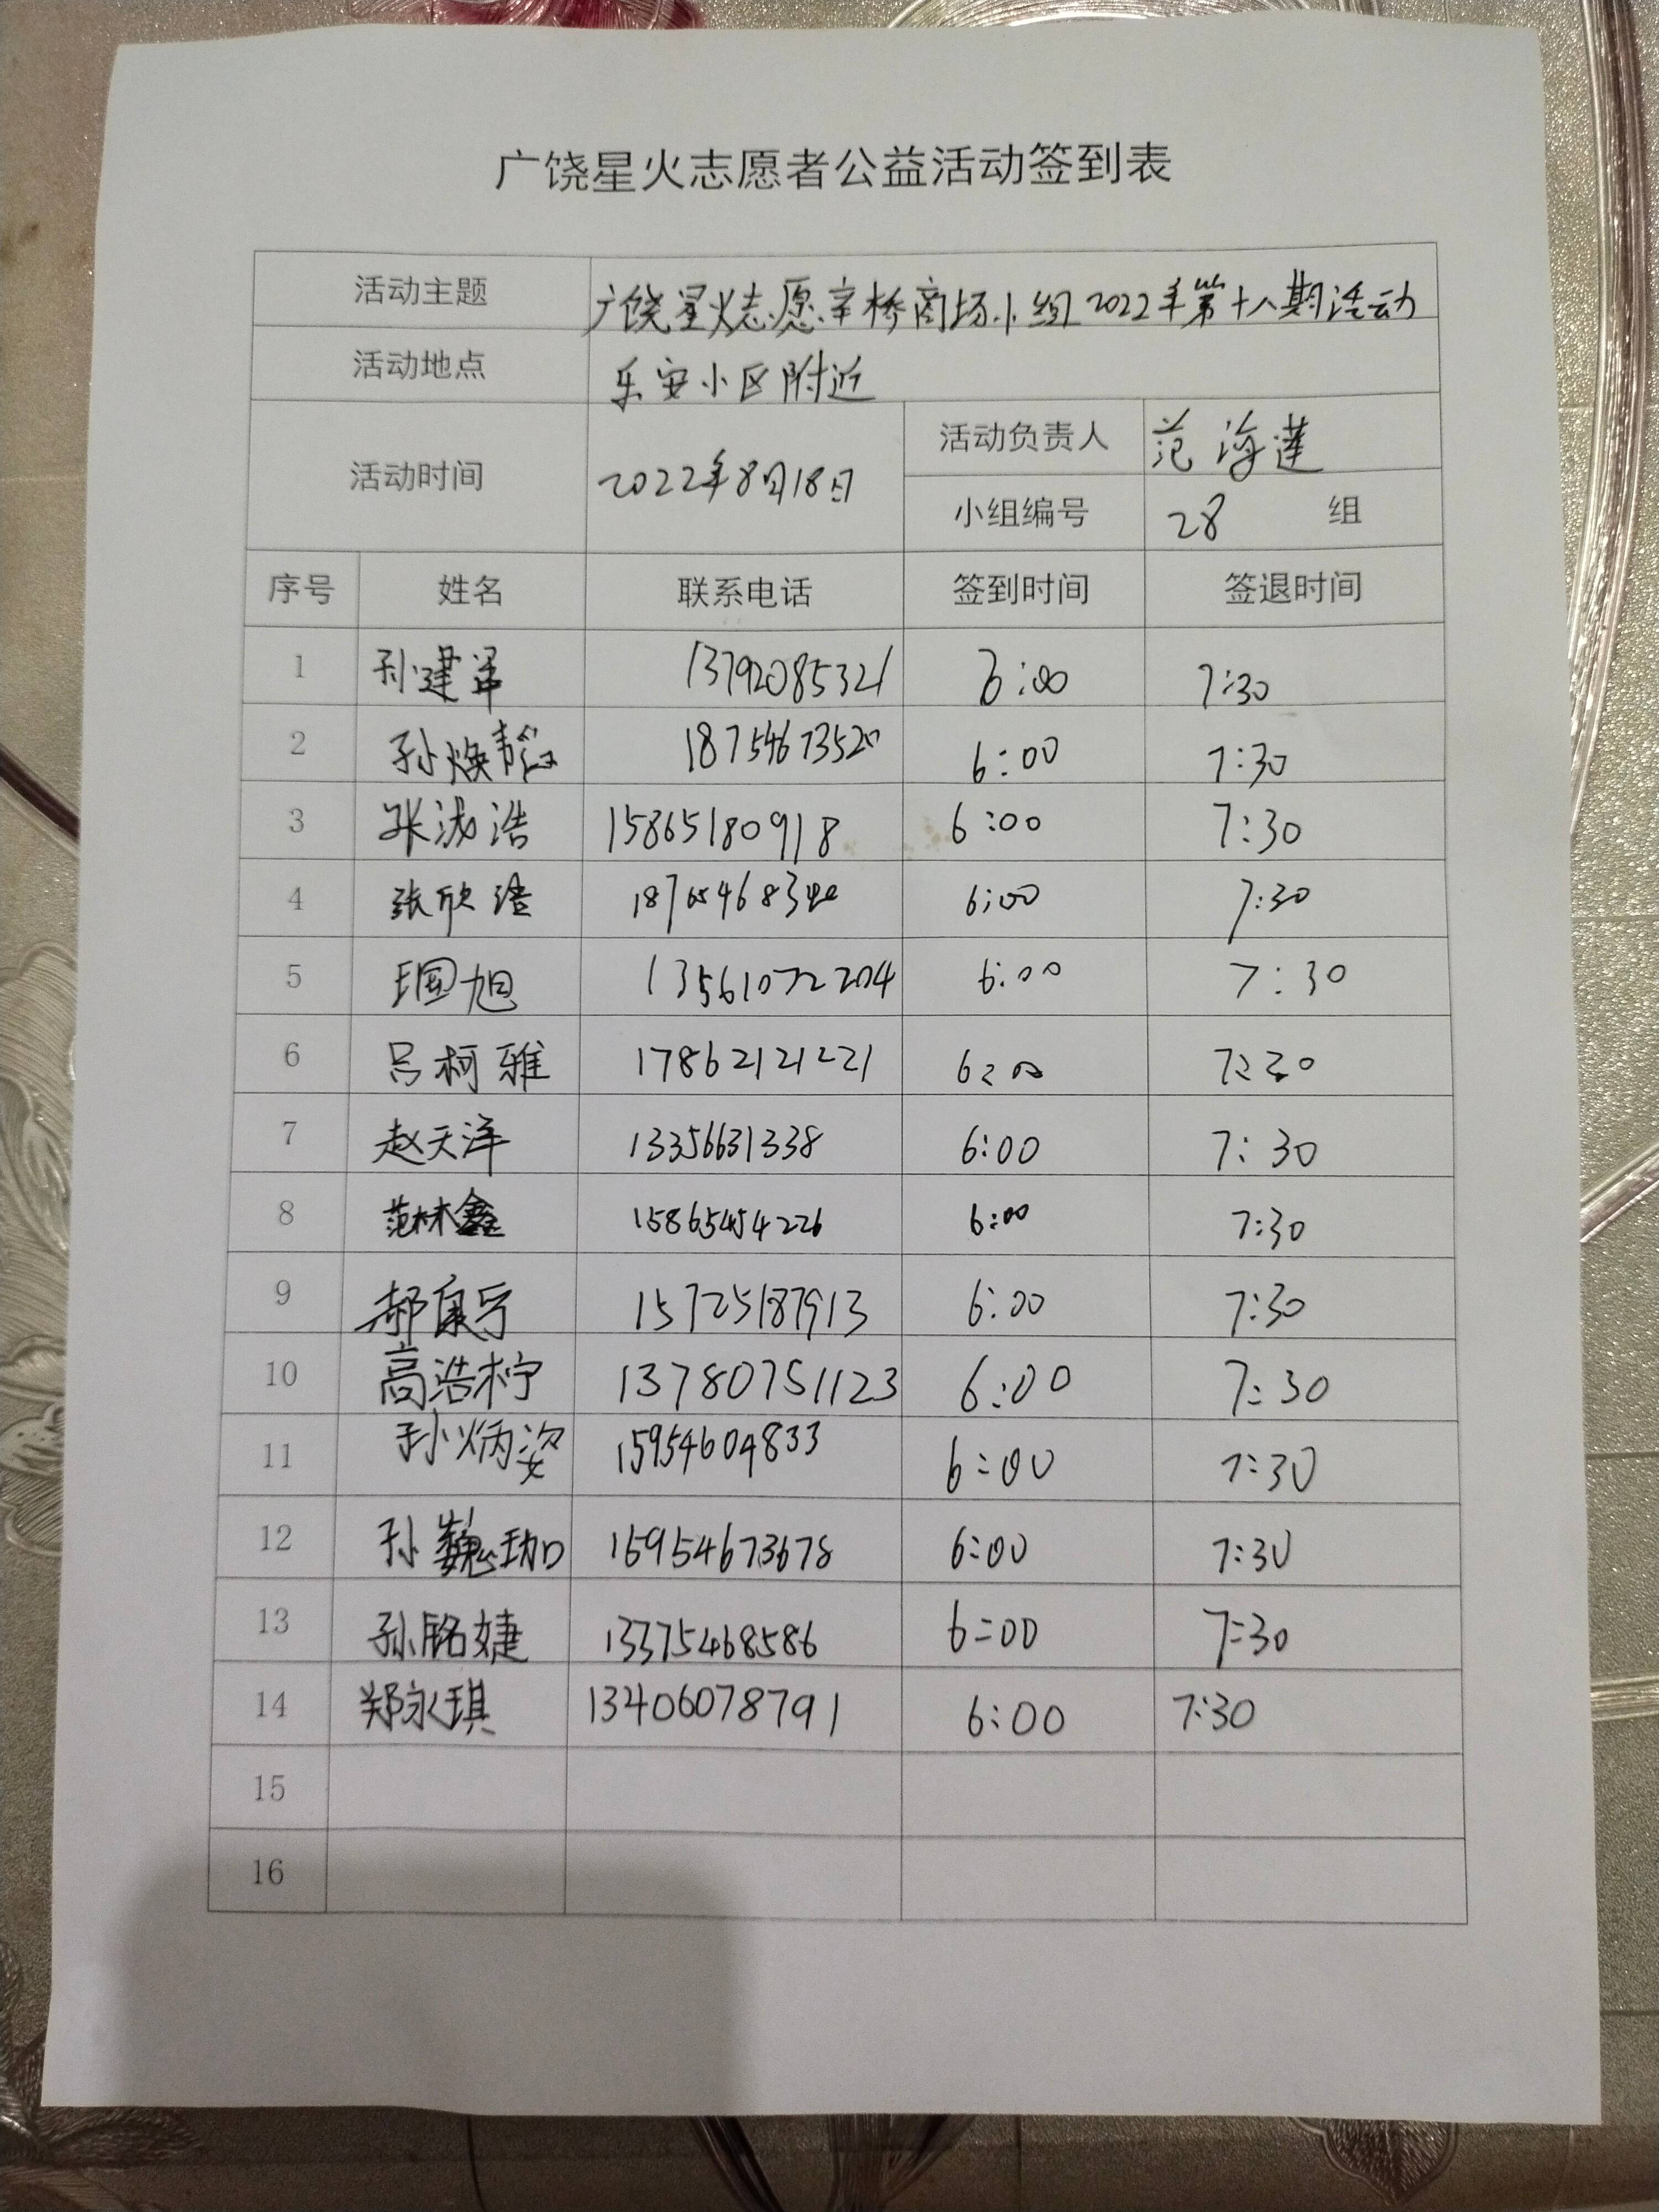 广饶星火志愿者公益活动签到表
活动主题 广饶星火志愿辛桥商场小组2022年第十八期活动
活动地点 乐安小区附近
活动时间 2022年8月18日 活动负责人 范海莲
小组编号 28 组
序号 姓名 联系电话 签到时间 签退时间
1 孙建 13792085321 6:00 7:30
2 孙焕 18754673520 6:00 7:30
3 张浩 15865180918 6:00 7:30
4 张欣 6:00 7:30
5 王国旭 13561072204 6:00 7:30
6 吕柯雅 17862121221 6:00 7:30
7 赵天洋 13356631338 6:00 7:30
8 范林鑫 15865454226 6:00 7:30
9 郝康宁 15725187913 6:00 7:30
10 高浩柠 13780751123 6:00 7:30
11 孙炳姿 15954604833 6:00 7:30
12 孙巍珈 15954673678 6:00 7:30
13 孙铭婕 13375468586 6:00 7:30
14 郑永琪 13406078791 6:00 7:30
15
16